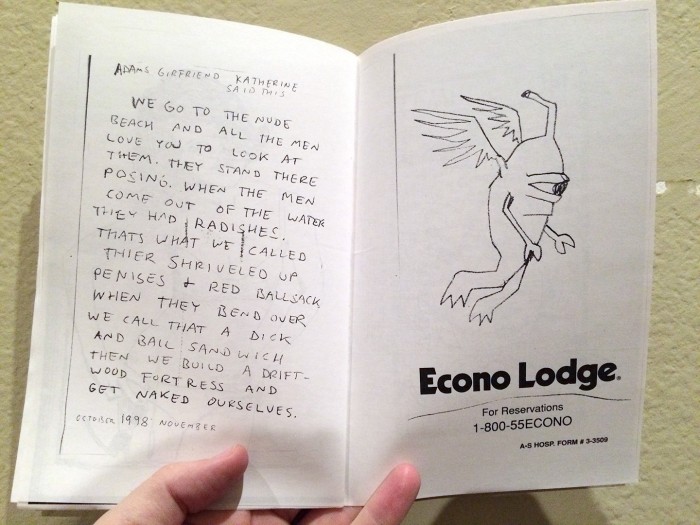 ADAMS GIRFRIEND KATHERINE
SAID THIS
WE GO TO THE NUDE
BEACH AND ALL THE MEN
LOVE YOU TO LOOK AT
THEM. THEY STAND THERE
POSING. WHEN THE MEN
COME OUT OF THE WATER
THEY HAD RADISHES.
THATS WHAT WE CALLED
THIER SHRIVELED UP
PENISES + RED BALLSACK
WHEN THEY BEND OVER
WE CALL THAT A DICK
AND BALL SANDWICH
THEN WE BUILD A DRIFT-
WOOD FORTRESS AND
GET NAKED OURSELVES.
OCTOBER 1998 NOVEMBER
Econo Lodge®
For Reservations
1-800-55ECONO
A-S HOSP. FORM # 3-3509